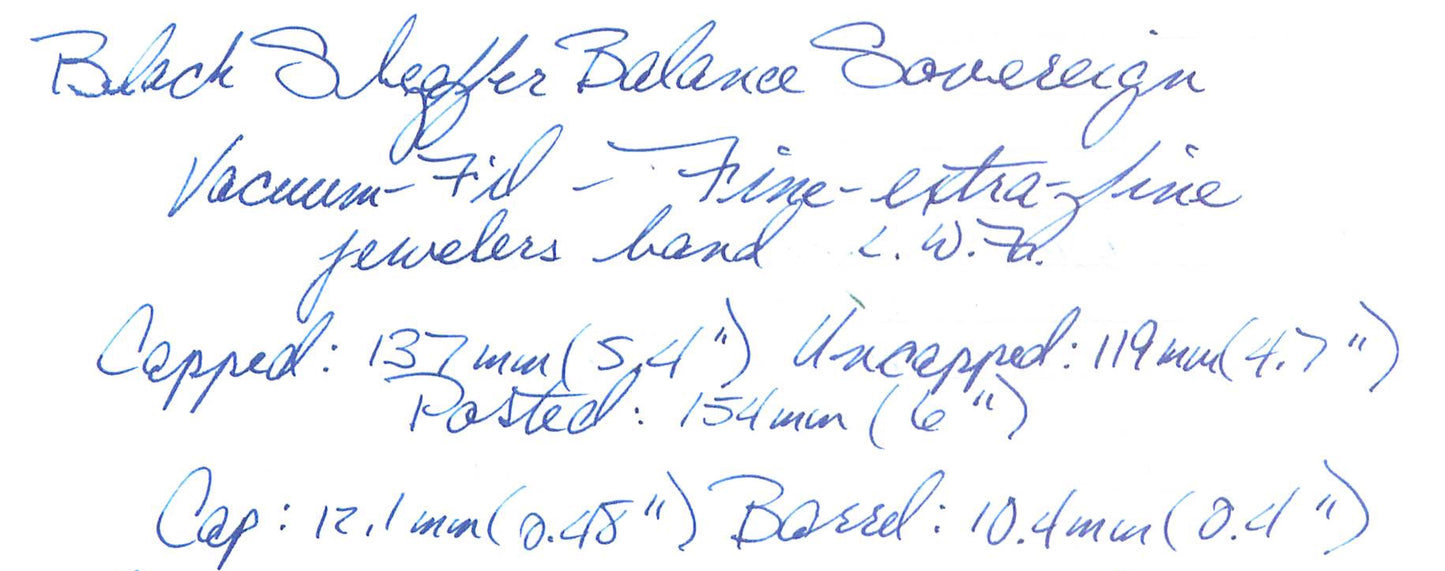 Black Sheaffer Balance Sovereign
Vacuum-Fil - Fine-extra-fine
jewelers band L.W.Fa.
Capped: 137mm(5.4") Uncapped: 119mm(4.7")
Posted: 154mm (6")
Cap: 12.1mm(0.48") Barrel: 10.4mm(0.4")